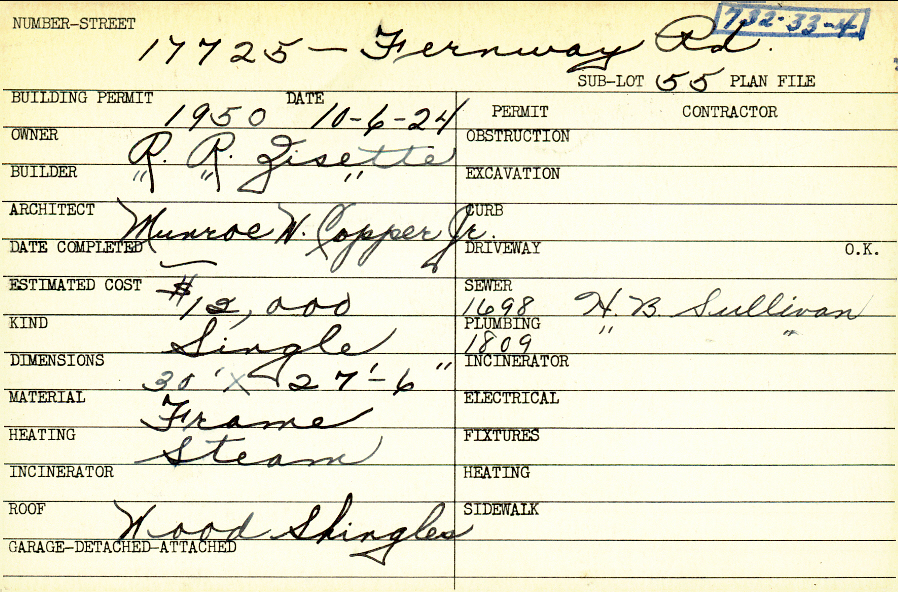 NUMBER-STREET 732-33-4
17725 — Fernway Rd.
SUB-LOT 55 PLAN FILE
BUILDING PERMIT 1950 DATE 10-6-24
PERMIT CONTRACTOR
OWNER R. R. Zisette
OBSTRUCTION
BUILDER " " "
EXCAVATION
ARCHITECT Munroe W. Copper Jr.
CURB
DATE COMPLETED —
DRIVEWAY O.K.
ESTIMATED COST $12,000
SEWER 1698 H. B. Sullivan
KIND Single
PLUMBING 1809 " "
DIMENSIONS 30' X 27'-6"
INCINERATOR
MATERIAL Frame
ELECTRICAL
HEATING Steam
FIXTURES
INCINERATOR
HEATING
ROOF Wood Shingles
SIDEWALK
GARAGE-DETACHED-ATTACHED